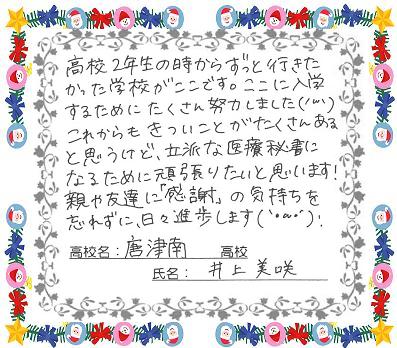 高校2年生の時からずっと行きた
かった学校がここです。ここに入学
するためにたくさん努力しました(ˊᵕˋ)
これからもきついことがたくさんある
と思うけど、立派な医療秘書に
なるために頑張りたいと思います!
親や友達に「感謝」の気持ちを
忘れずに、日々進歩します(`･ω･´)!
高校名:唐津南 高校
氏名:井上美咲